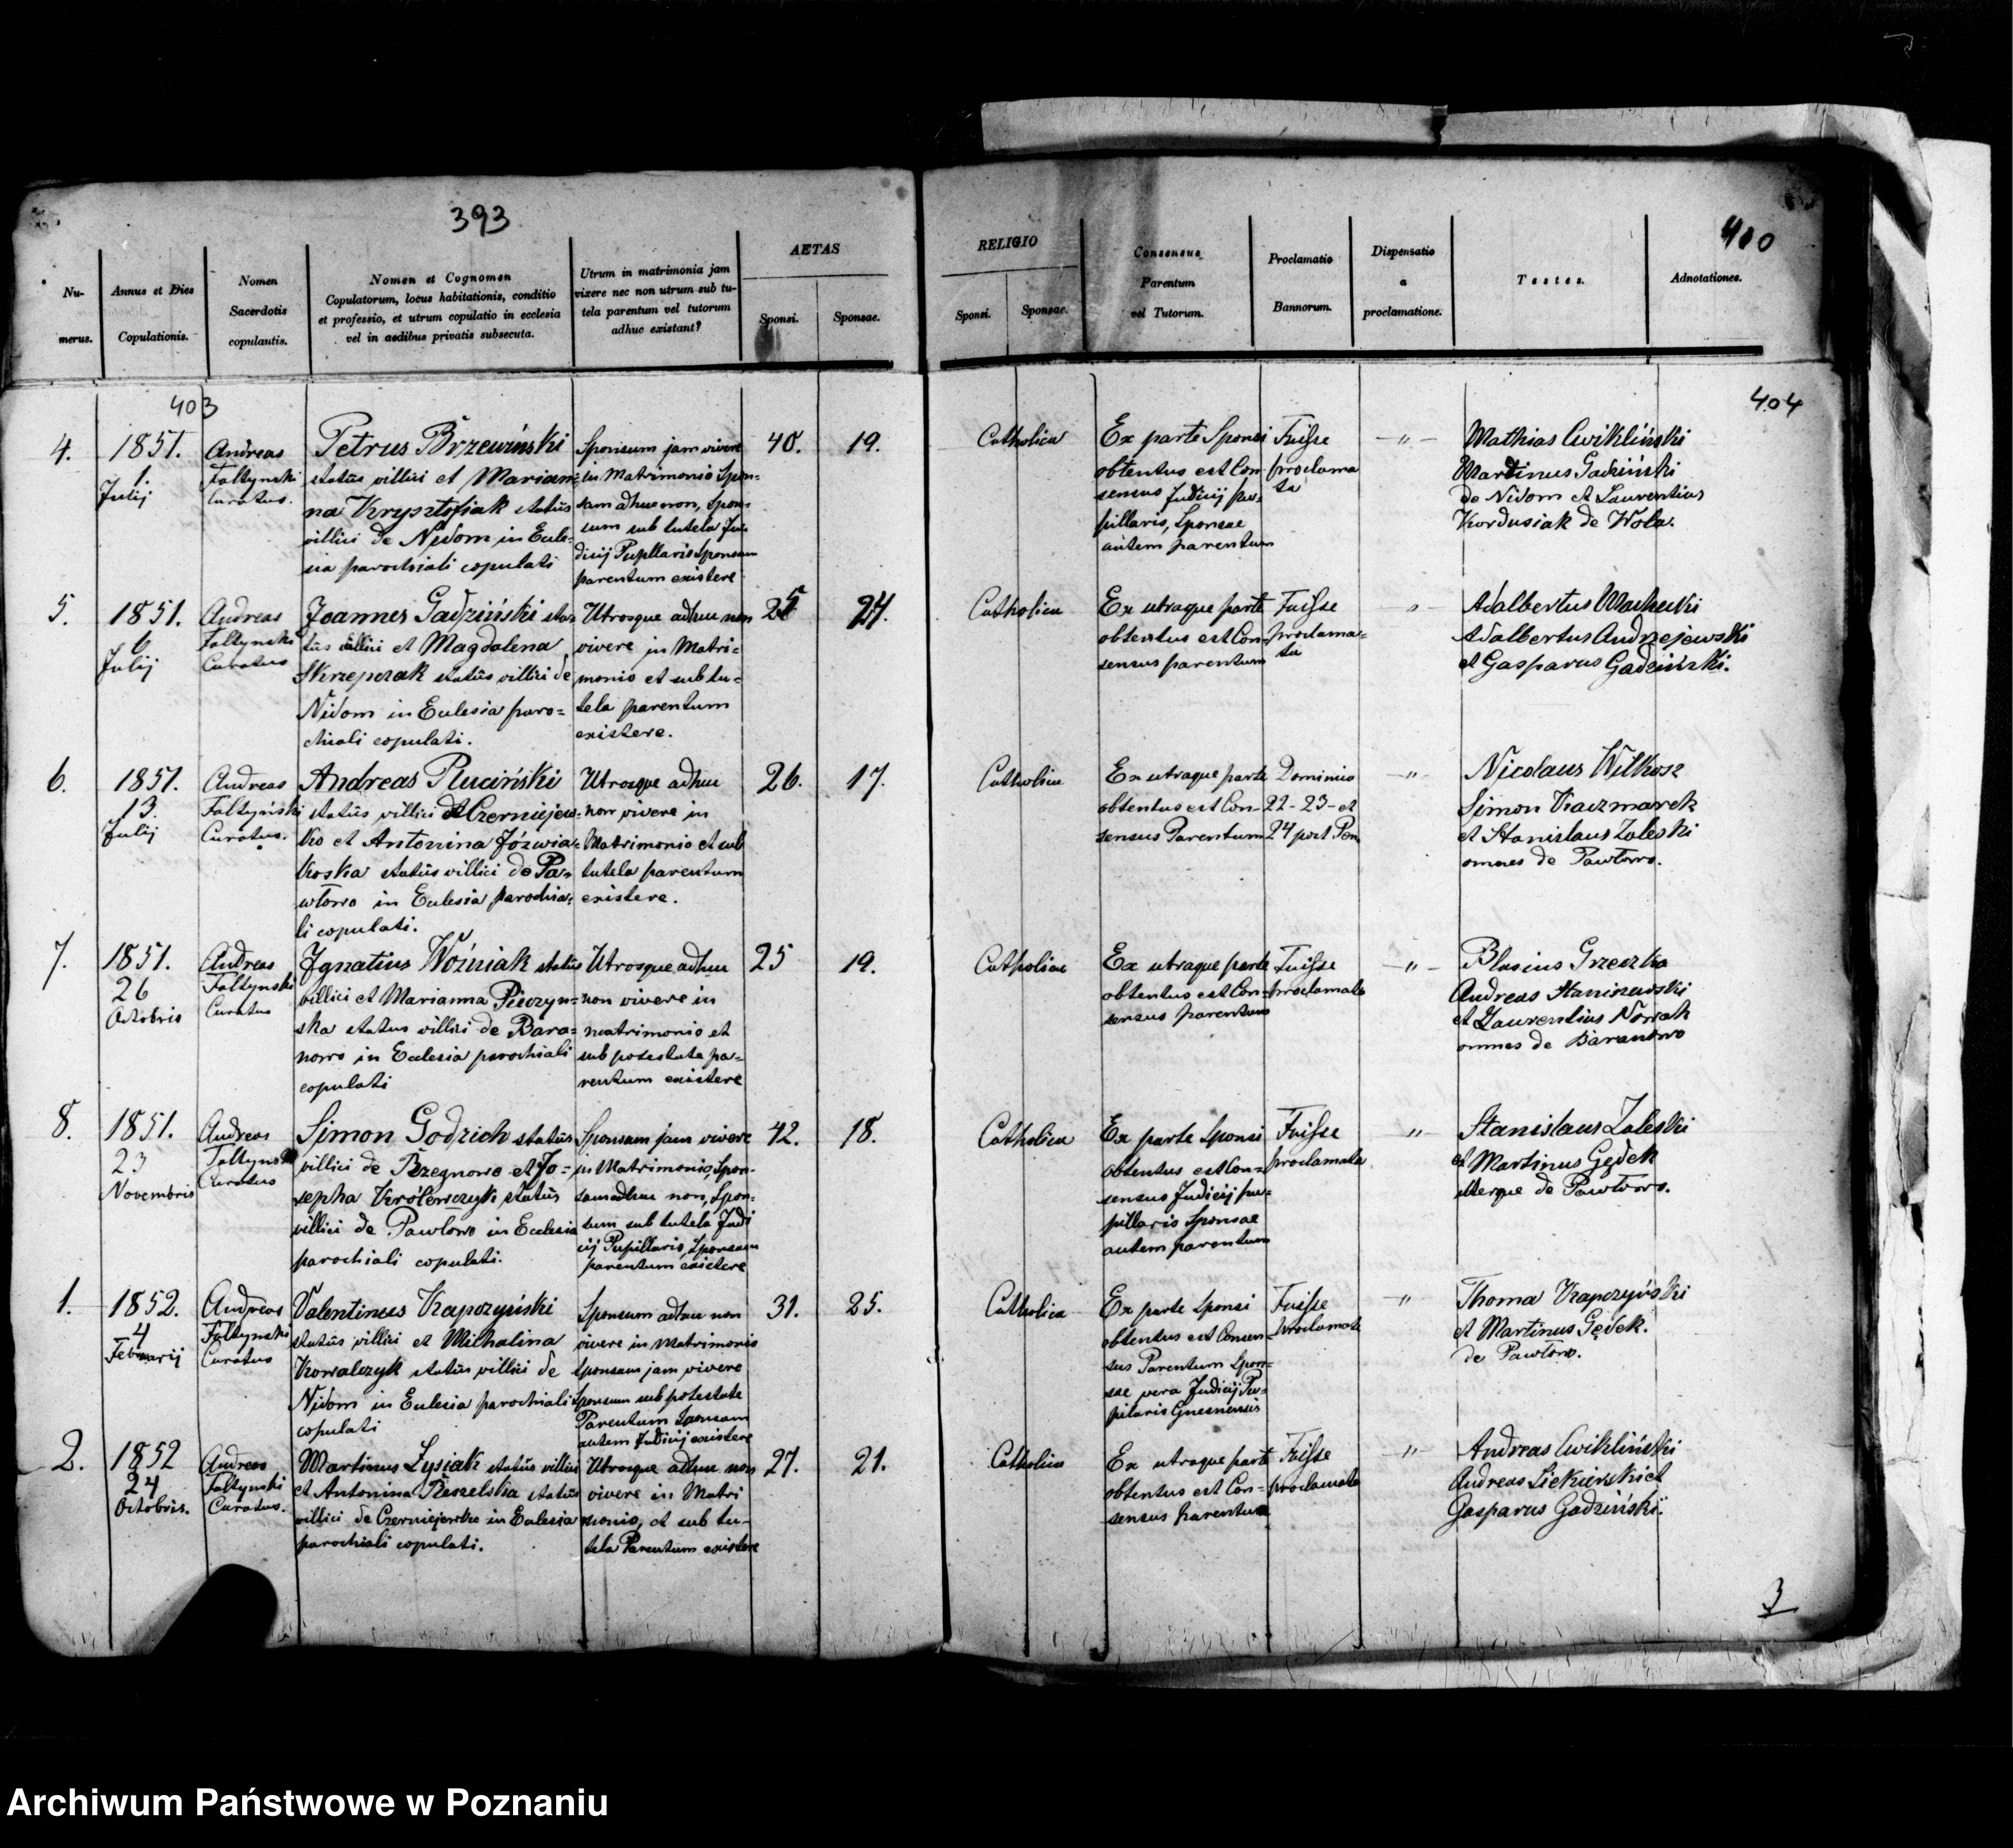 393
410
Nu-
merus.
Annus et Dies
Copulationis.
Nomen
Sacerdotis
copulantis.
Nomen et Cognomen
Copulatorum, locus habitationis, conditio
et professio, et utrum copulatio in ecclesia
vel in aedibus privatis subsecuta.
Utrum in matrimonia jam
vixere nec non utrum sub tu-
tela parentum vel tutorum
adhuc existant?
AETAS
Sponsi.
Sponsae.
RELIGIO
Sponsi.
Sponsae.
Consensus
Parentum
vel Tutorum.
Proclamatio
Bannorum.
Dispensatio
a
proclamatione.
Testes.
Adnotationes.
403
404
4.
1851.
1.
Julij
Andreas
Faltynski
Curatus.
Petrus Brzewiński
statûs villici et Marian-
na Krysztofiak statûs
villici de Nidom in Eccle-
sia parochiali copulati
Sponsum jam vivere
in Matrimonio Spon-
sam adhuc non, Spon-
sum sub tutela Ju-
dicij Pupillaris Sponsam
parentum existere
40.
19.
Catholica
Ex parte Sponsi
obtentus est Con-
sensus Judicij pu-
pillaris, Sponsae
autem parentum
Fuisse
proclama
ta
-"-
Mathias Cwikliński
Martinus Gadziński
de Nidom et Laurentius
Kordusiak de Wola.
5.
1851.
6
Julij
Andreas
Faltynski
Curatus
Joannes Gadziński sta-
tûs villici et Magdalena
Skrzepczak statûs villici de
Nidom in Eclesia paro=
chiali copulati.
Utrosque adhuc non
vivere in Matri=
monio et sub tu=
tela parentum
existere.
25
24.
Catholica
Ex utraque parte
obtentus est Con-
sensus parentum
Fuisse
proclama=
ta
"
Adalbertus
Adalbertus Andrzejewski
et Gasparus Gadziński.
6.
1851.
13.
Julij
Andreas
Faltyński
Curatus.
Andreas Pluciński
statûs villici de Czerniejew-
ko et Antonina Józwia-
koska statûs villici de Pa-
włowo in Eclesia parochia-
li copulati.
Utrosque adhuc
non vivere in
Matrimonio et sub
tutela parentum
existere.
26.
17.
Catholica
Ex utraque parte
obtentus est Con-
sensus Parentum
Dominico
22-23-et
24 post Pen
-"-
Nicolaus Wilkosz
Simon Kaczmarek
et Stanislaus Zaleski
omnes de Pawłowo.
7.
1851.
26
Octobris
Andreas
Faltynski
Curatus
Ignatius Woźniak statûs
villici et Marianna Pieczyn-
ska status villici de Bara=
nowo in Ecclesia parochiali
copulati
Utrosque adhuc
non vivere in
matrimonio et
sub potestate pa=
rentum existere
25
19.
Catholicae
Ex utraque parte
obtentus est Con-
sensus parentum
Fuisse
proclamata
-"-
Blasius Grzeczka
Andreas Staniszewski
et Laurentius Nowak
omnes de Baranowo
8.
1851.
23
Novembris
Andreas
Faltynski
Curatus
Simon Godzich statûs
villici de Bzegnowo et Jo=
sepha Królewczyk statûs
villici de Pawłowo in Ecclesia
parochiali copulati.
Sponsum jam vivere
in Matrimonio, Spon-
sam adhuc non, Spon-
sum sub tutela Judi
cij Pupillaris, Sponsam
parentum existere
42.
18.
Catholica
Ex parte Sponsi
obtentus est Con-
sensus Judicij pu-
pillaris Sponsae
autem parentum
Fuisse
proclamata
"
Stanislaus Zaleski
et Martinus Gędek
uterque de Pawłowo.
1.
1852.
4
Februarij
Andreas
Faltynski
Curatus
Valentinus Kapczyński
statûs villici et Michalina
Kowalczyk statûs villici de
Nidom in Eclesia parochiali
copulati
Sponsum adhuc non
vivere in Matrimonio
Sponsam jam vivere
Sponsum sub potestate
Parentum Sponsam
autem Judicij existere
31.
25.
Catholica
Ex parte Sponsi
obtentus est Consen-
sus Parentum Spon-
sae vero Judicij Pu-
pilaris Gnesnensis
Fuisse
proclamata
"
Thoma Kapczyński
et Martinus Gędek.
de Pawłowo.
2.
1852
24
Octobris.
Andreas
Faltynski
Curatus.
Martinus Łysiak statûs villici
et Antonina statûs
villici de Czerniejewko in Eclesia
parochiali copulati.
Utrosque adhuc non
vivere in Matri
monio, et sub tu-
tela Parentum existere
27.
21.
Catholica
Ex utraque parte
obtentus est Con-
sensus parentum
Fuisse
proclamata
"
Andreas Cwikliński
Andreas Siekierski et
Gasparus Gadziński.
3
Archiwum Państwowe w Poznaniu